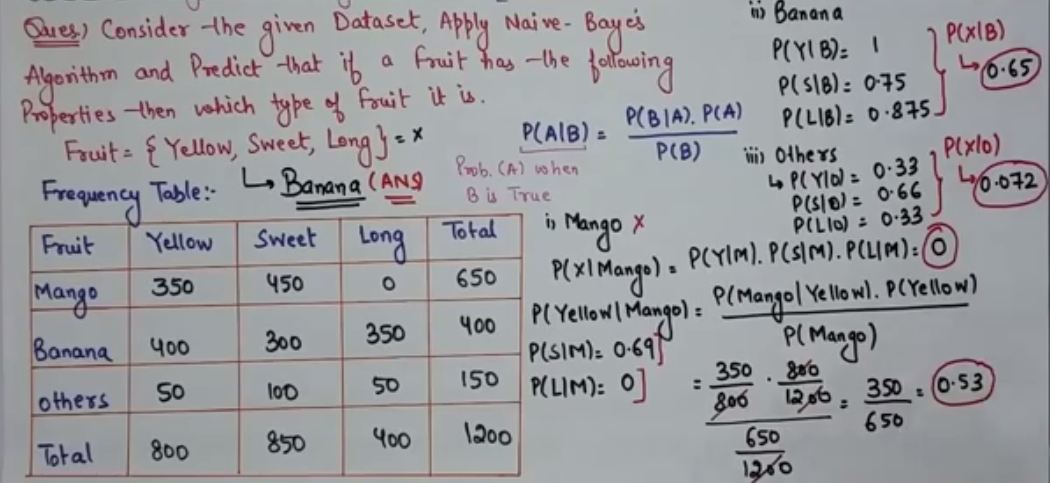 Ques.) Consider the given Dataset, Apply Naive-Baye's
Algorithm and Predict that if a fruit has the following
Properties then which type of fruit it is.
Fruit = { Yellow, Sweet, Long } = x
Frequency Table:- ↳ Banana (ANS)
P(A|B) = P(B|A). P(A) / P(B)
Prob. (A) when
B is True
Fruit Yellow Sweet Long Total
Mango 350 450 0 650
Banana 400 300 350 400
others 50 100 50 150
Total 800 850 400 1200
i) Mango X
P(X|Mango) = P(Y|M). P(S|M). P(L|M) = 0
P(Yellow|Mango) = P(Mango|Yellow). P(Yellow) / P(Mango)
P(S|M) = 0.69]
P(L|M) = 0]
= 350/800 . 800/1200 / 650/1200 = 350/650 = 0.53
ii) Banana
P(Y|B) = 1
P(S|B) = 0.75
P(L|B) = 0.875
P(X|B)
↳ 0.65
iii) Others
↳ P(Y|O) = 0.33
P(S|O) = 0.66
P(L|O) = 0.33
P(X|O)
↳ 0.072